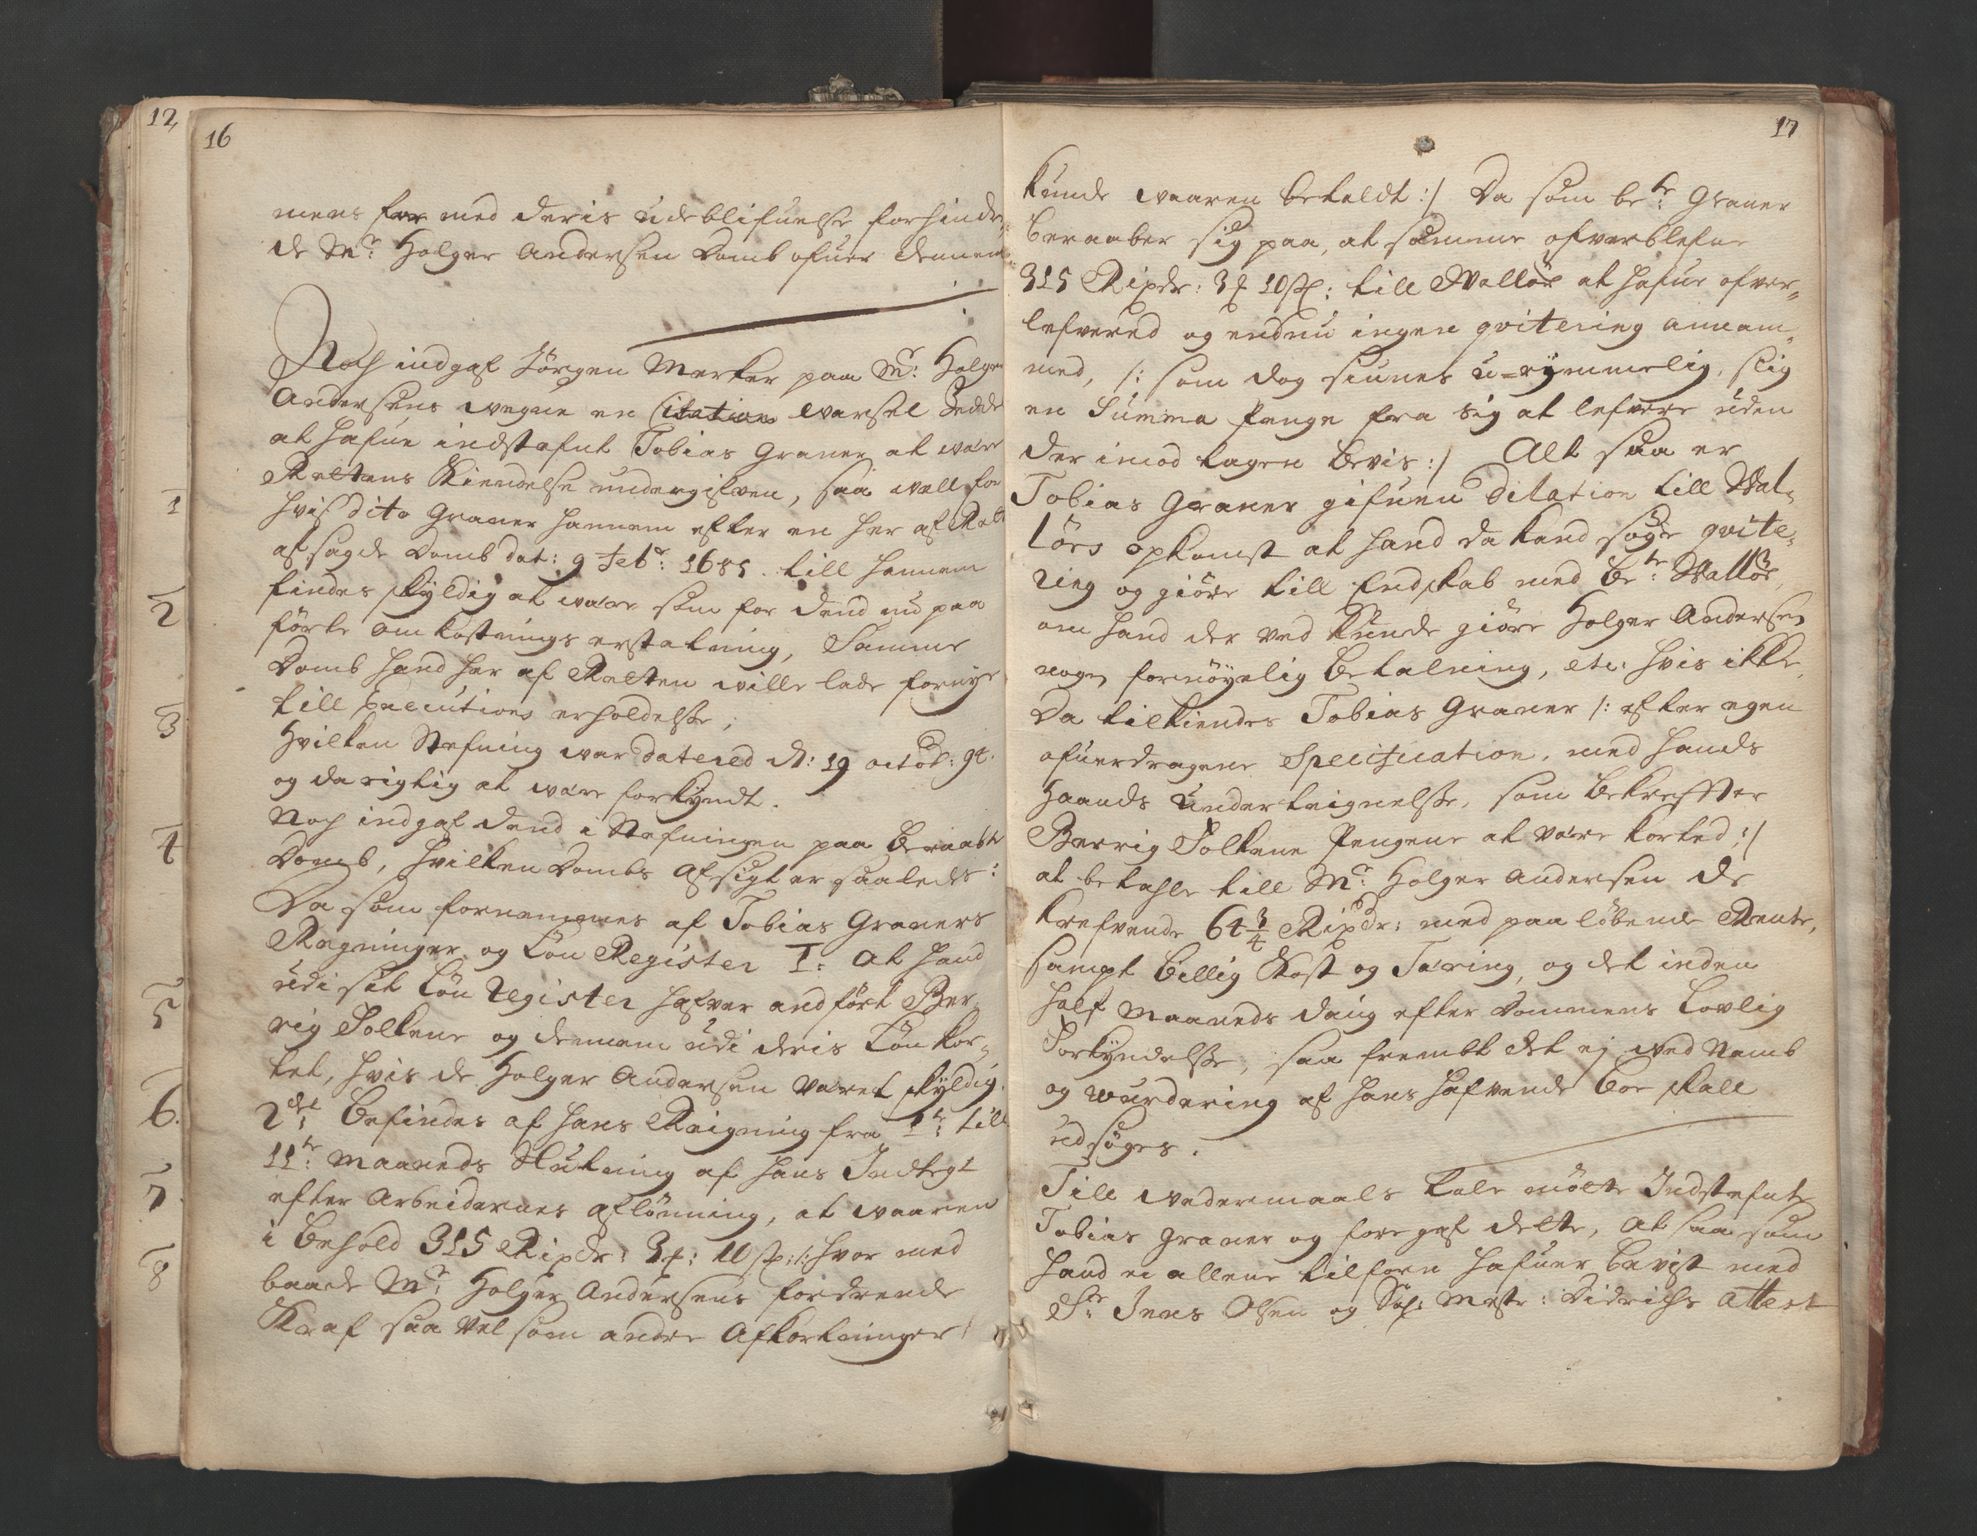 12,
16
mens for med deris udeblifuelse forhindre,
de Mr: Holger Andersen Domb ofuer dennem
Noch indgaf Jörgen Merker paa Mr: Holger
Andersens wegne en Citation warsel Seddel
at hafue indstefnt Tobias Graner at være
Rettens Kiendelse undergifven, saa well for
hvis dito Graner hannem efter en her af Rett
afsagde Domb dat: 9 Febr: 1685. till hannem
findes skyldig at wære som for dend nu paa
förte omkostnings erstatning, Samme
Domb hand her af Retten wille lade fornye
till Executions erholdelse,
Hvilken Stefning war datered d: 19 octob: 91.
og da rigtig at wære forkyndt.
Noch indgaf dend i Stefningen paa beraabte
Domb, hvilken Dombs afsigt er saaledes:
Da som fornemmes af Tobias Graners
Regninger og Lön Register I: at hand
udi sit Lön Register hafver andfört Ber,
rig Folkene og dennem udi deris Lön kor,
tet, hvis de Holger Andersen været skyldig.
2det: befindes af hans Reigning fra 1te: till
11te: Maaneds Slutning af hans Indtegt
efter Arbeidernes aflönning, at waaren
i behold 315 Ripdr: 3 f: 10 sk: /: hvor med
baade Mr: Holger Andersens fordrende
Kraf saa vel som andre Afkortninger
1
2
3
4
5
6.
7.
8
17
kunde waaren betaldt :/ Da som bete: Graner
beraaber sig paa, at samme ofverblefne
315 Ripdr: 3 f 10 sk: till Wallör at hafue ofver,
lefvered og endnu ingen qvitering annam,
med, /: som dog siunes u=rymmelig, slig
en Summa Penge fra sig at lefvere uden
der imod tagen bevis :/ Alt saa er
Tobias Graner gifuen Dilation till Wal,
lörs opkomst at hand da kand söge qvite,
ring og giöre till Endskab med bete: Wallör,
om hand der ved kunde giöre Holger Andersen
nogen fornöyelig betalning, etc: hvis ikke,
Da tilkiendes Tobias Graner /: efter egen
ofuerdragene Specification, med hands
Haands underteignelse, som bekreffter
Berrig Folkene Pengene at være korted :/
at betahle till Mr: Holger Andersen de
krefvende 64 3/4 Ripdr: med paa löbende Rente,
sampt billig Kost og Tæring, og det inden
half Maaneds dang efter Dommens Lovlig
Forkyndelse, saa frembt det ej wed Namb
og wurdering af hans hafvende boe skall
udsöges.
Till wedermaals tale mötte Indstefnte
Tobias Graner og foregaf dette, at saa som
hand ei allene tilforn hafuer bevist med
Sr: Jens Olsen og Mestr: Didrichs Attest